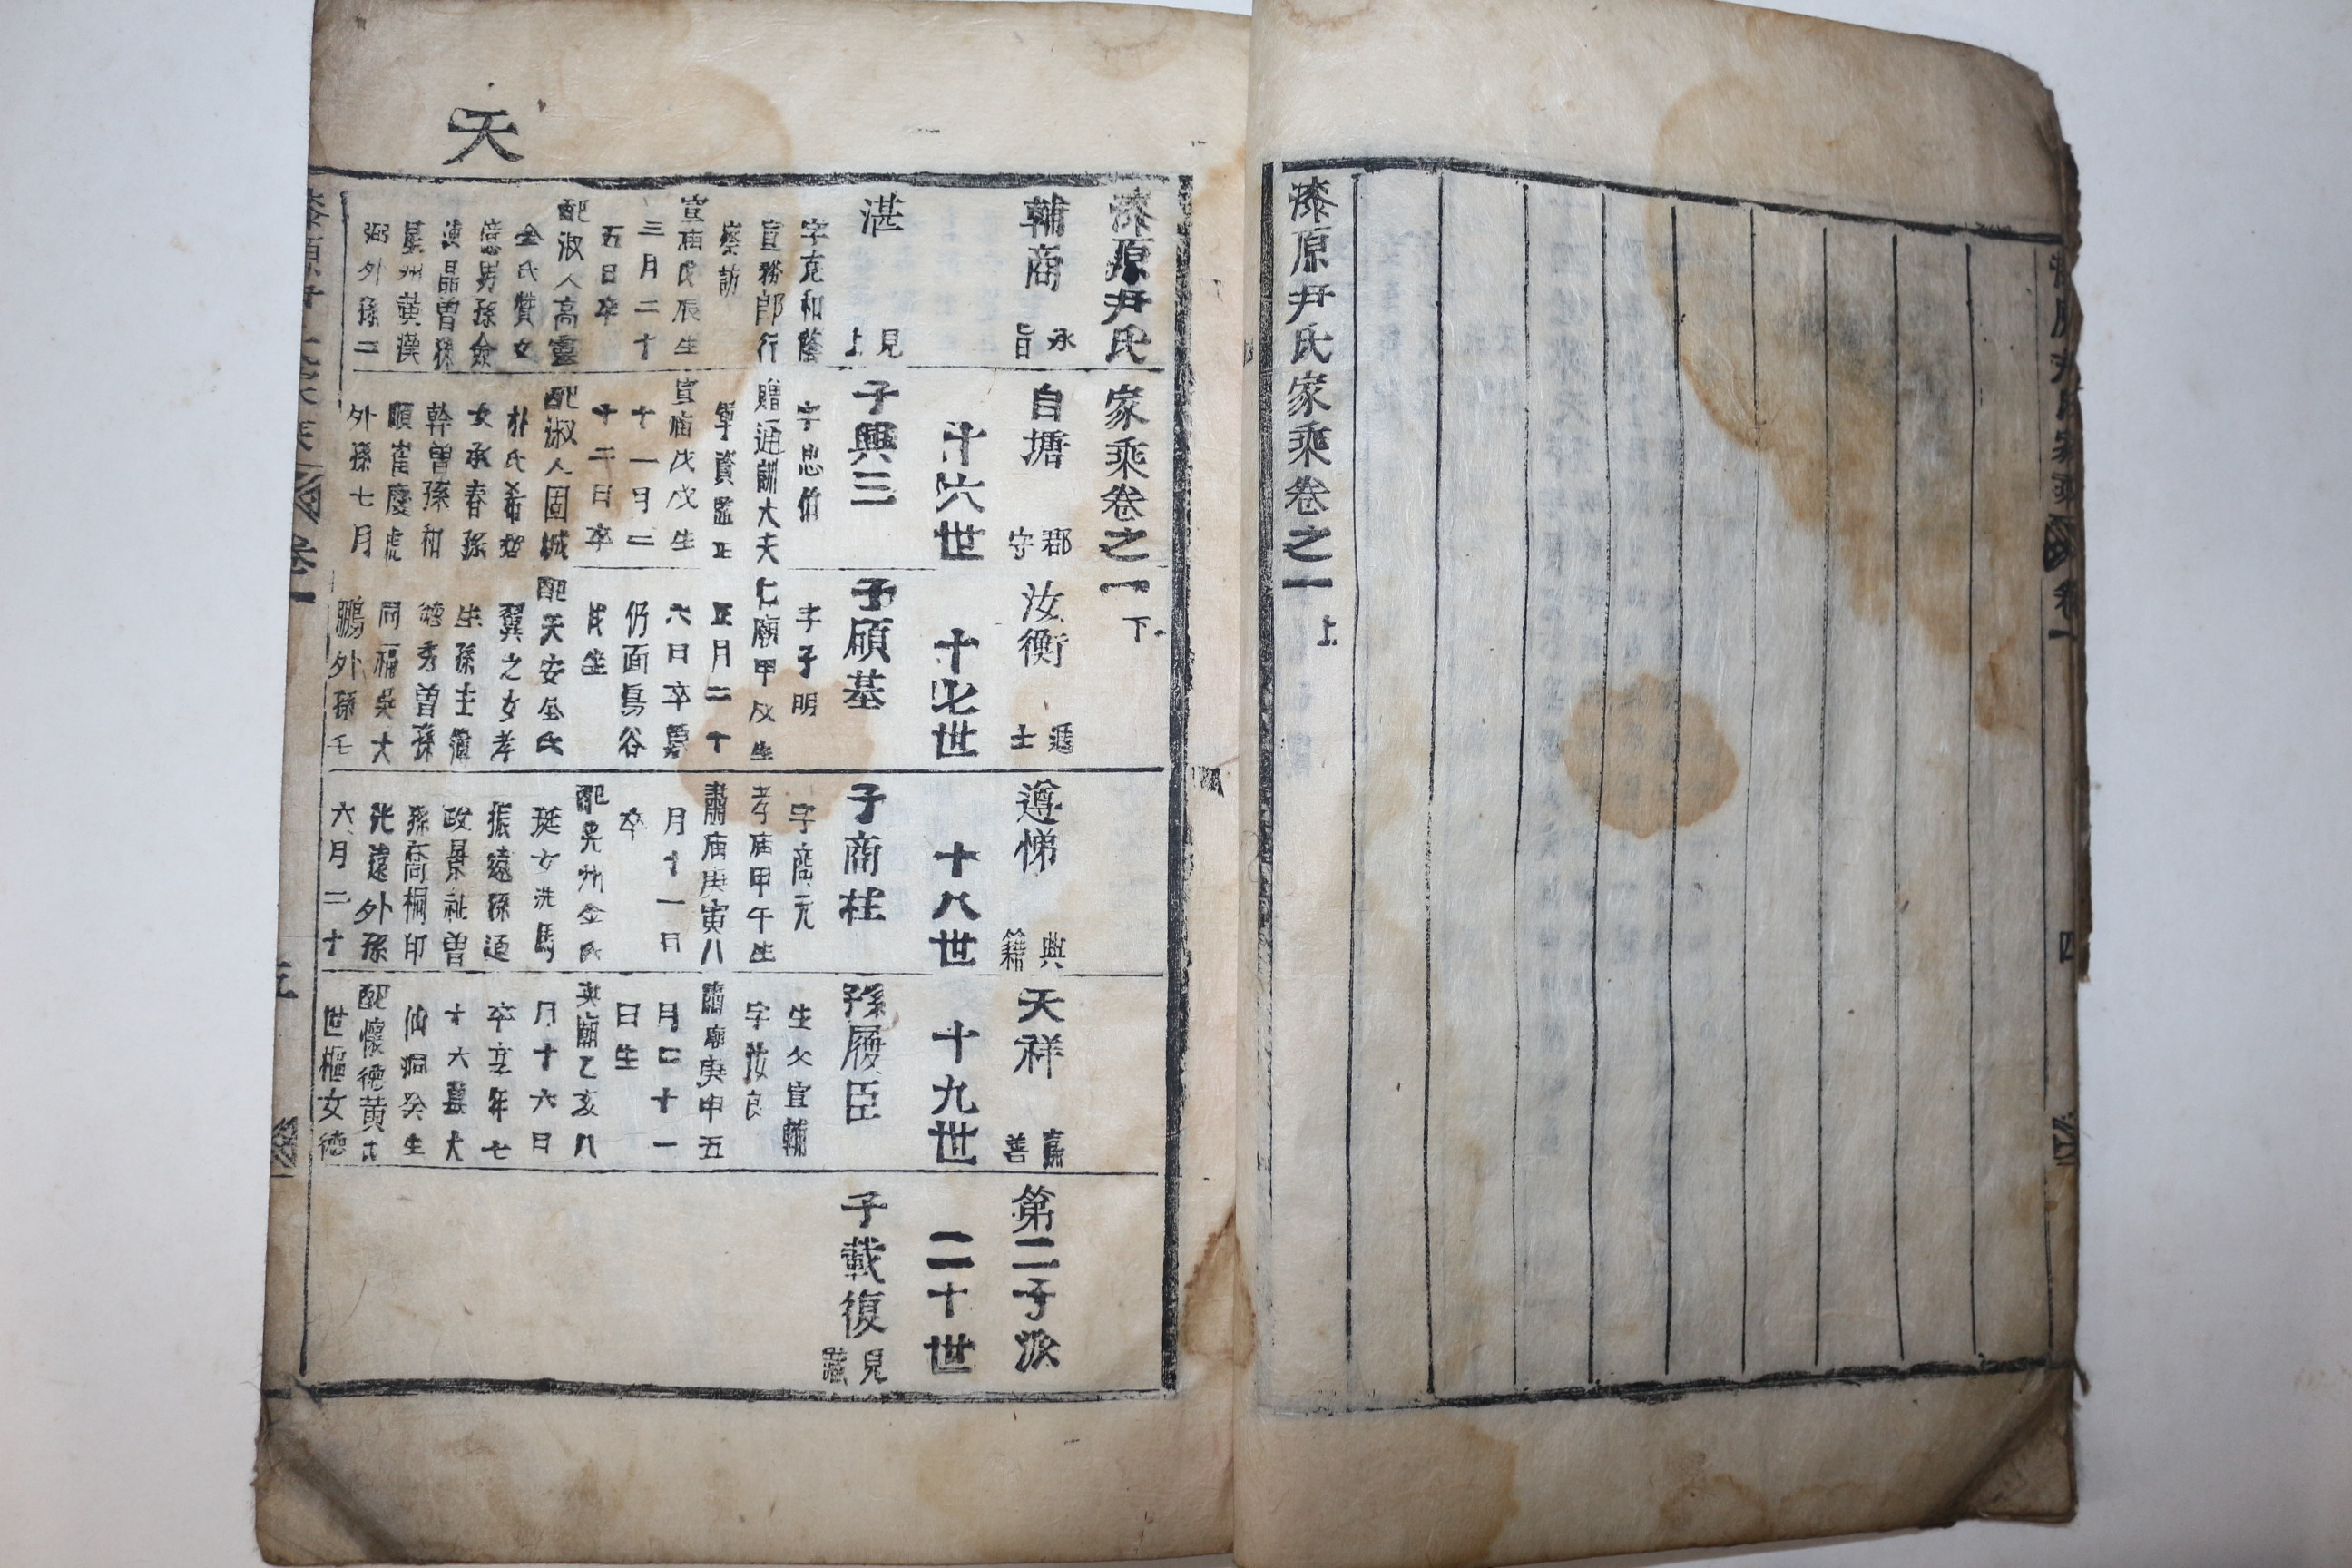 漆原尹氏家乘卷之一 上
天
漆原尹氏家乘卷之一 下
輔商 承旨
自塘 郡守
汝衡 進士
遵悌 典籍
天祥 嘉善
第二子派
十六世
十七世
十八世
十九世
二十世
湛 見上
字克和蔭
宣務郎行
察訪
宣庙戊辰生
三月二十
五日卒
配淑人高靈
金氏贊女
曾孫
星州黃漢
弼外孫二
子興三
字忠伯
贈通訓大夫
軍資監正
宣庙戊戌生
十一月二
十二日卒
配淑人固城
朴氏希哲
女承春孫
幹曾孫和
順崔慶虎
外孫七月
子碩基
字子明
仁廟甲戌生
正月二十
六日卒墓
仍面烏谷
坐
配天安全氏
翼之女孝
生孫士
德秀曾孫
同福吳大
鵬外孫七
子商柱
字商元
孝庙甲午生
肅庙庚寅八
月十一日
卒
配光州金氏
珽女洗馬
振遠孫通
政景祉曾
孫喬桐印
光遠外孫
六月二十
孫履臣
生父宜輔
字汝良
肅廟庚申五
月二十一
日生
英廟乙亥八
月十六日
卒享年七
十六墓大
仙洞癸坐
配懷德黃氏
世樞女德
子載復 見
卷一
四